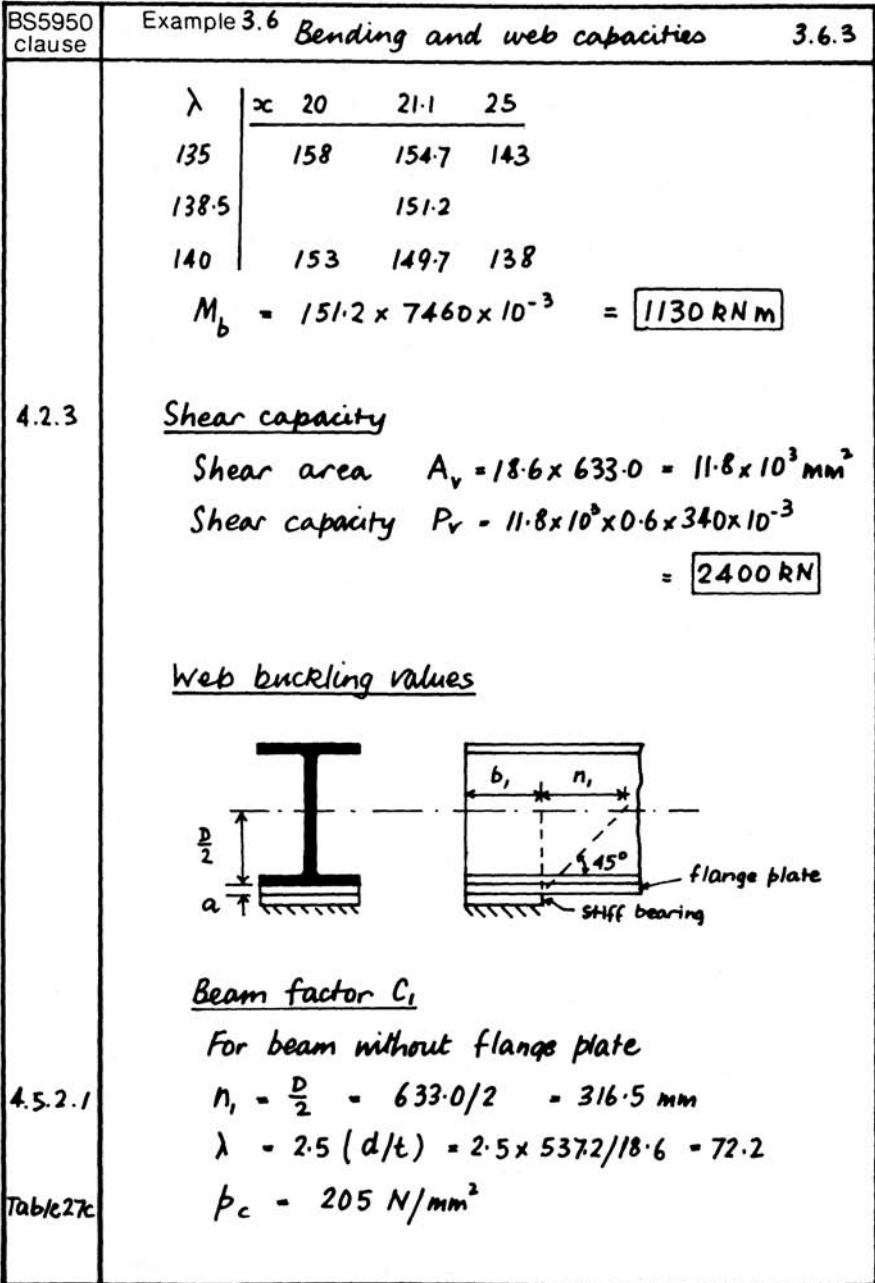 BS5950 clause Example 3.6 Bending and web capacities 3.6.3
λ x 20 21.1 25
135 158 154.7 143
138.5 151.2
140 153 149.7 138
M_b = 151.2 x 7460 x 10^-3 = 1130 kNm
4.2.3 Shear capacity
Shear area A_v = 18.6 x 633.0 = 11.8 x 10^3 mm^2
Shear capacity P_v = 11.8 x 10^3 x 0.6 x 340 x 10^-3
= 2400 kN
Web buckling values
b_1 n_1
D/2
45°
flange plate
a
stiff bearing
Beam factor C_1
For beam without flange plate
4.5.2.1 n_1 = D/2 = 633.0/2 = 316.5 mm
λ = 2.5 (d/t) = 2.5 x 537.2/18.6 = 72.2
Table 27c p_c = 205 N/mm^2